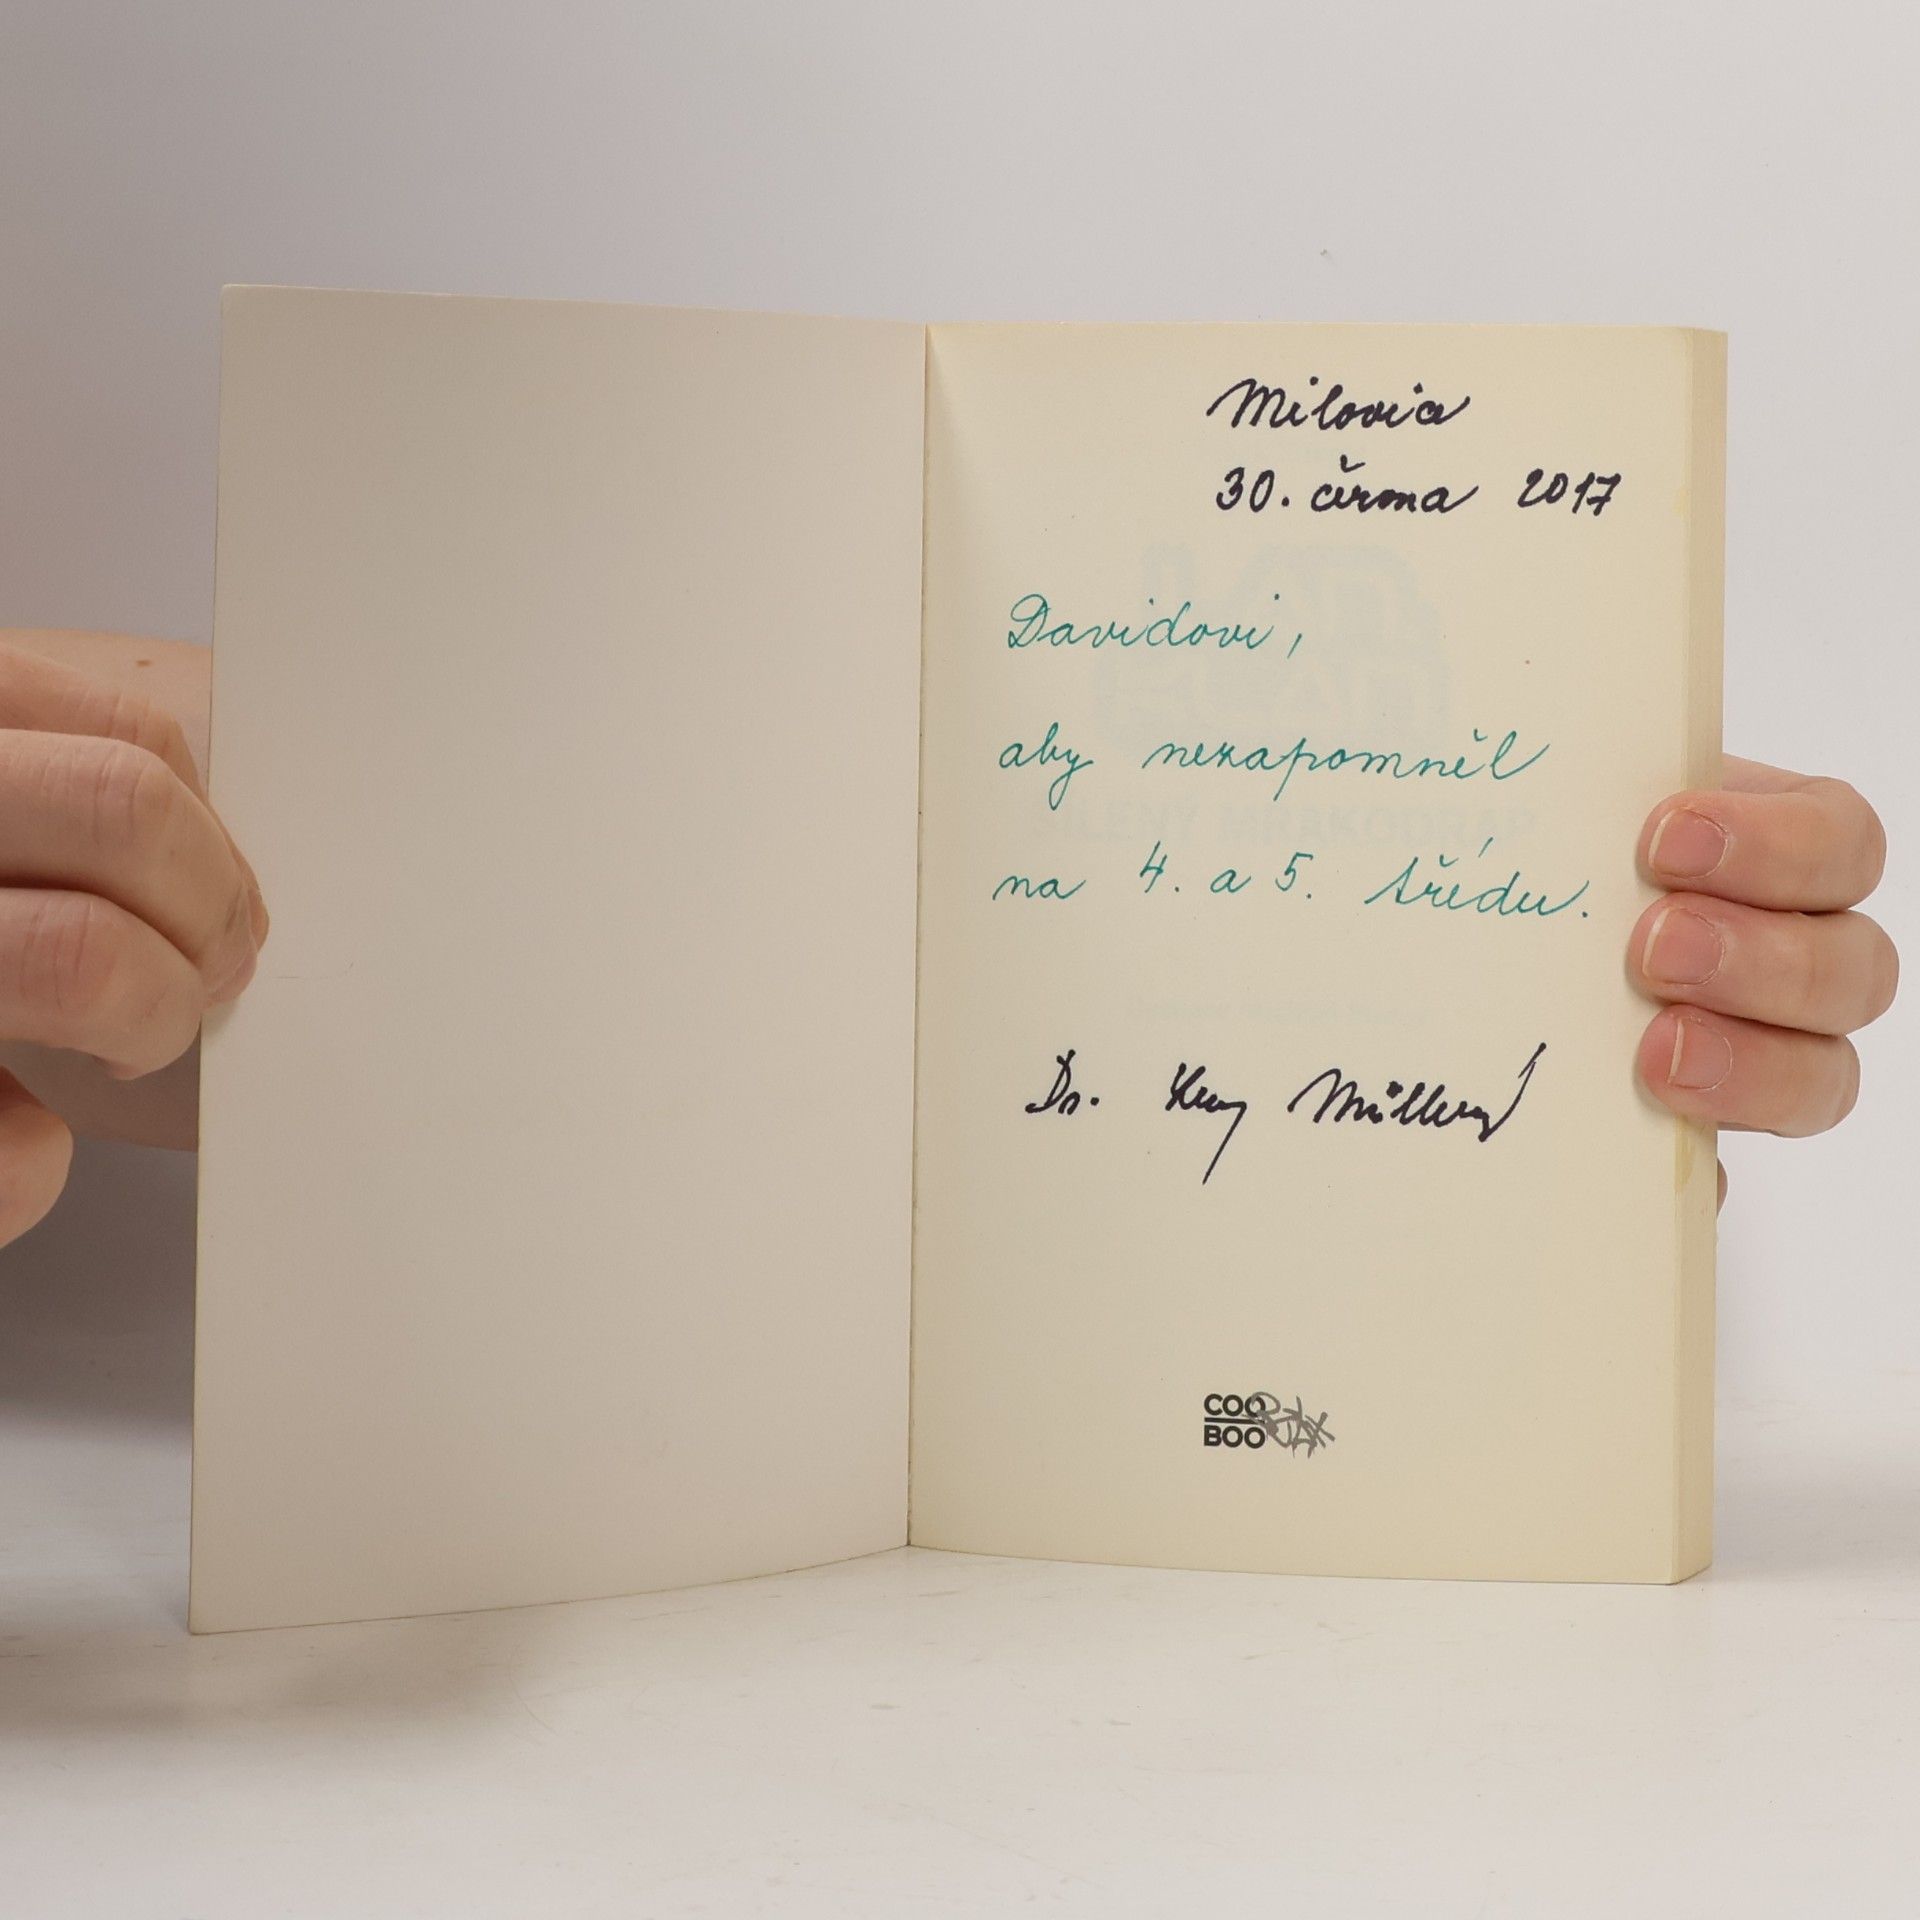 Milovice
30. června 2017
Davidovi,
aby nezapomněl
na 4. a 5. třídu.
Dr. Müllerová
COO
BOO